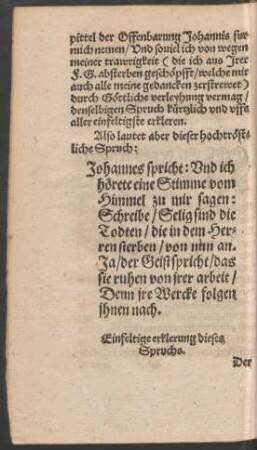 pittel der Offenbarung Johannis für
mich nemen/ Vnd souiel ich von wegen
meiner trawrigkeit ( die ich aus Irer
F. G. absterben geschöpfft/ welche mir
auch alle meine gedancken zerstrewet)
durch Göttliche verleyhung vermag/
denselbigen Spruch kürtzlich vnd vffs
aller einfeltigste erkleren.
Also lautet aber dieser hochtröst-
liche Spruch:
Johannes spricht: Vnd ich
hörete eine Stimme vom
Himmel zu mir sagen:
Schreibe/ Selig sind die
Todten/ die in dem Her-
ren sterben/ von nun an.
Ja/ der Geist spricht/ das
sie ruhen von jrer arbeit/
Denn jre Wercke folgen
jhnen nach.
Einfeltige erklerung dieses
Spruchs.
Der